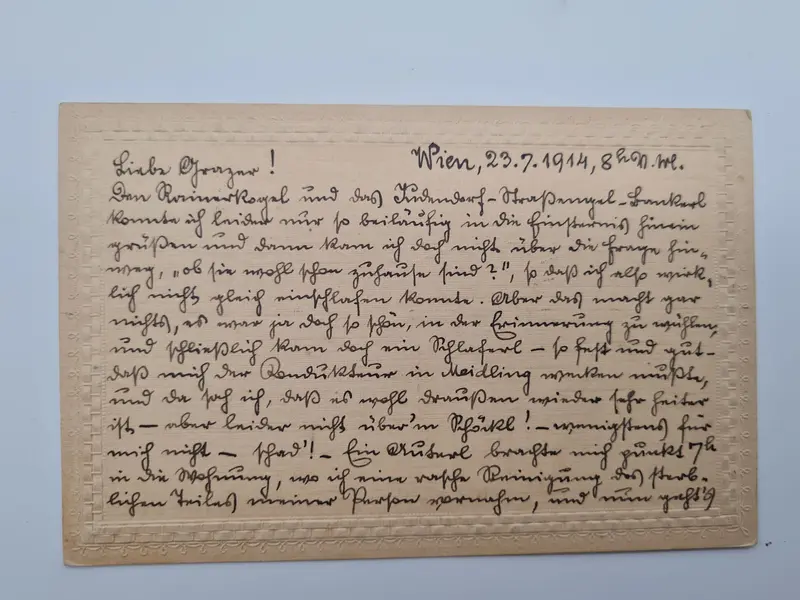 Liebe Grazer! Wien, 23.7.1914, 8h V.M.
Den Rainerkogel und das Judendorf-Straßengel-Bankerl
konnte ich leider nur so beiläufig in die Finsternis hinein
grüßen und dann kam ich doch nicht über die Frage hin-
weg, „ob sie wohl schon zuhause sind?", so daß ich also wirk-
lich nicht gleich einschlafen konnte. Aber das macht gar
nichts, es war ja doch so schön, in der Erinnerung zu wühlen,
und schließlich kam doch ein Schlaferl – so fest und gut –
daß mich der Kondukteur in Meidling wecken mußte,
und da sah ich, daß es wohl draußen wieder sehr heiter
ist – aber leider nicht über'm Schöckl! – wenigstens für
mich nicht – schad'! – Ein Auterl brachte mich punkt 7h
in die Wohnung, wo ich eine rasche Reinigung des sterb-
lichen Teiles meiner Person vornahm, und nun geht's